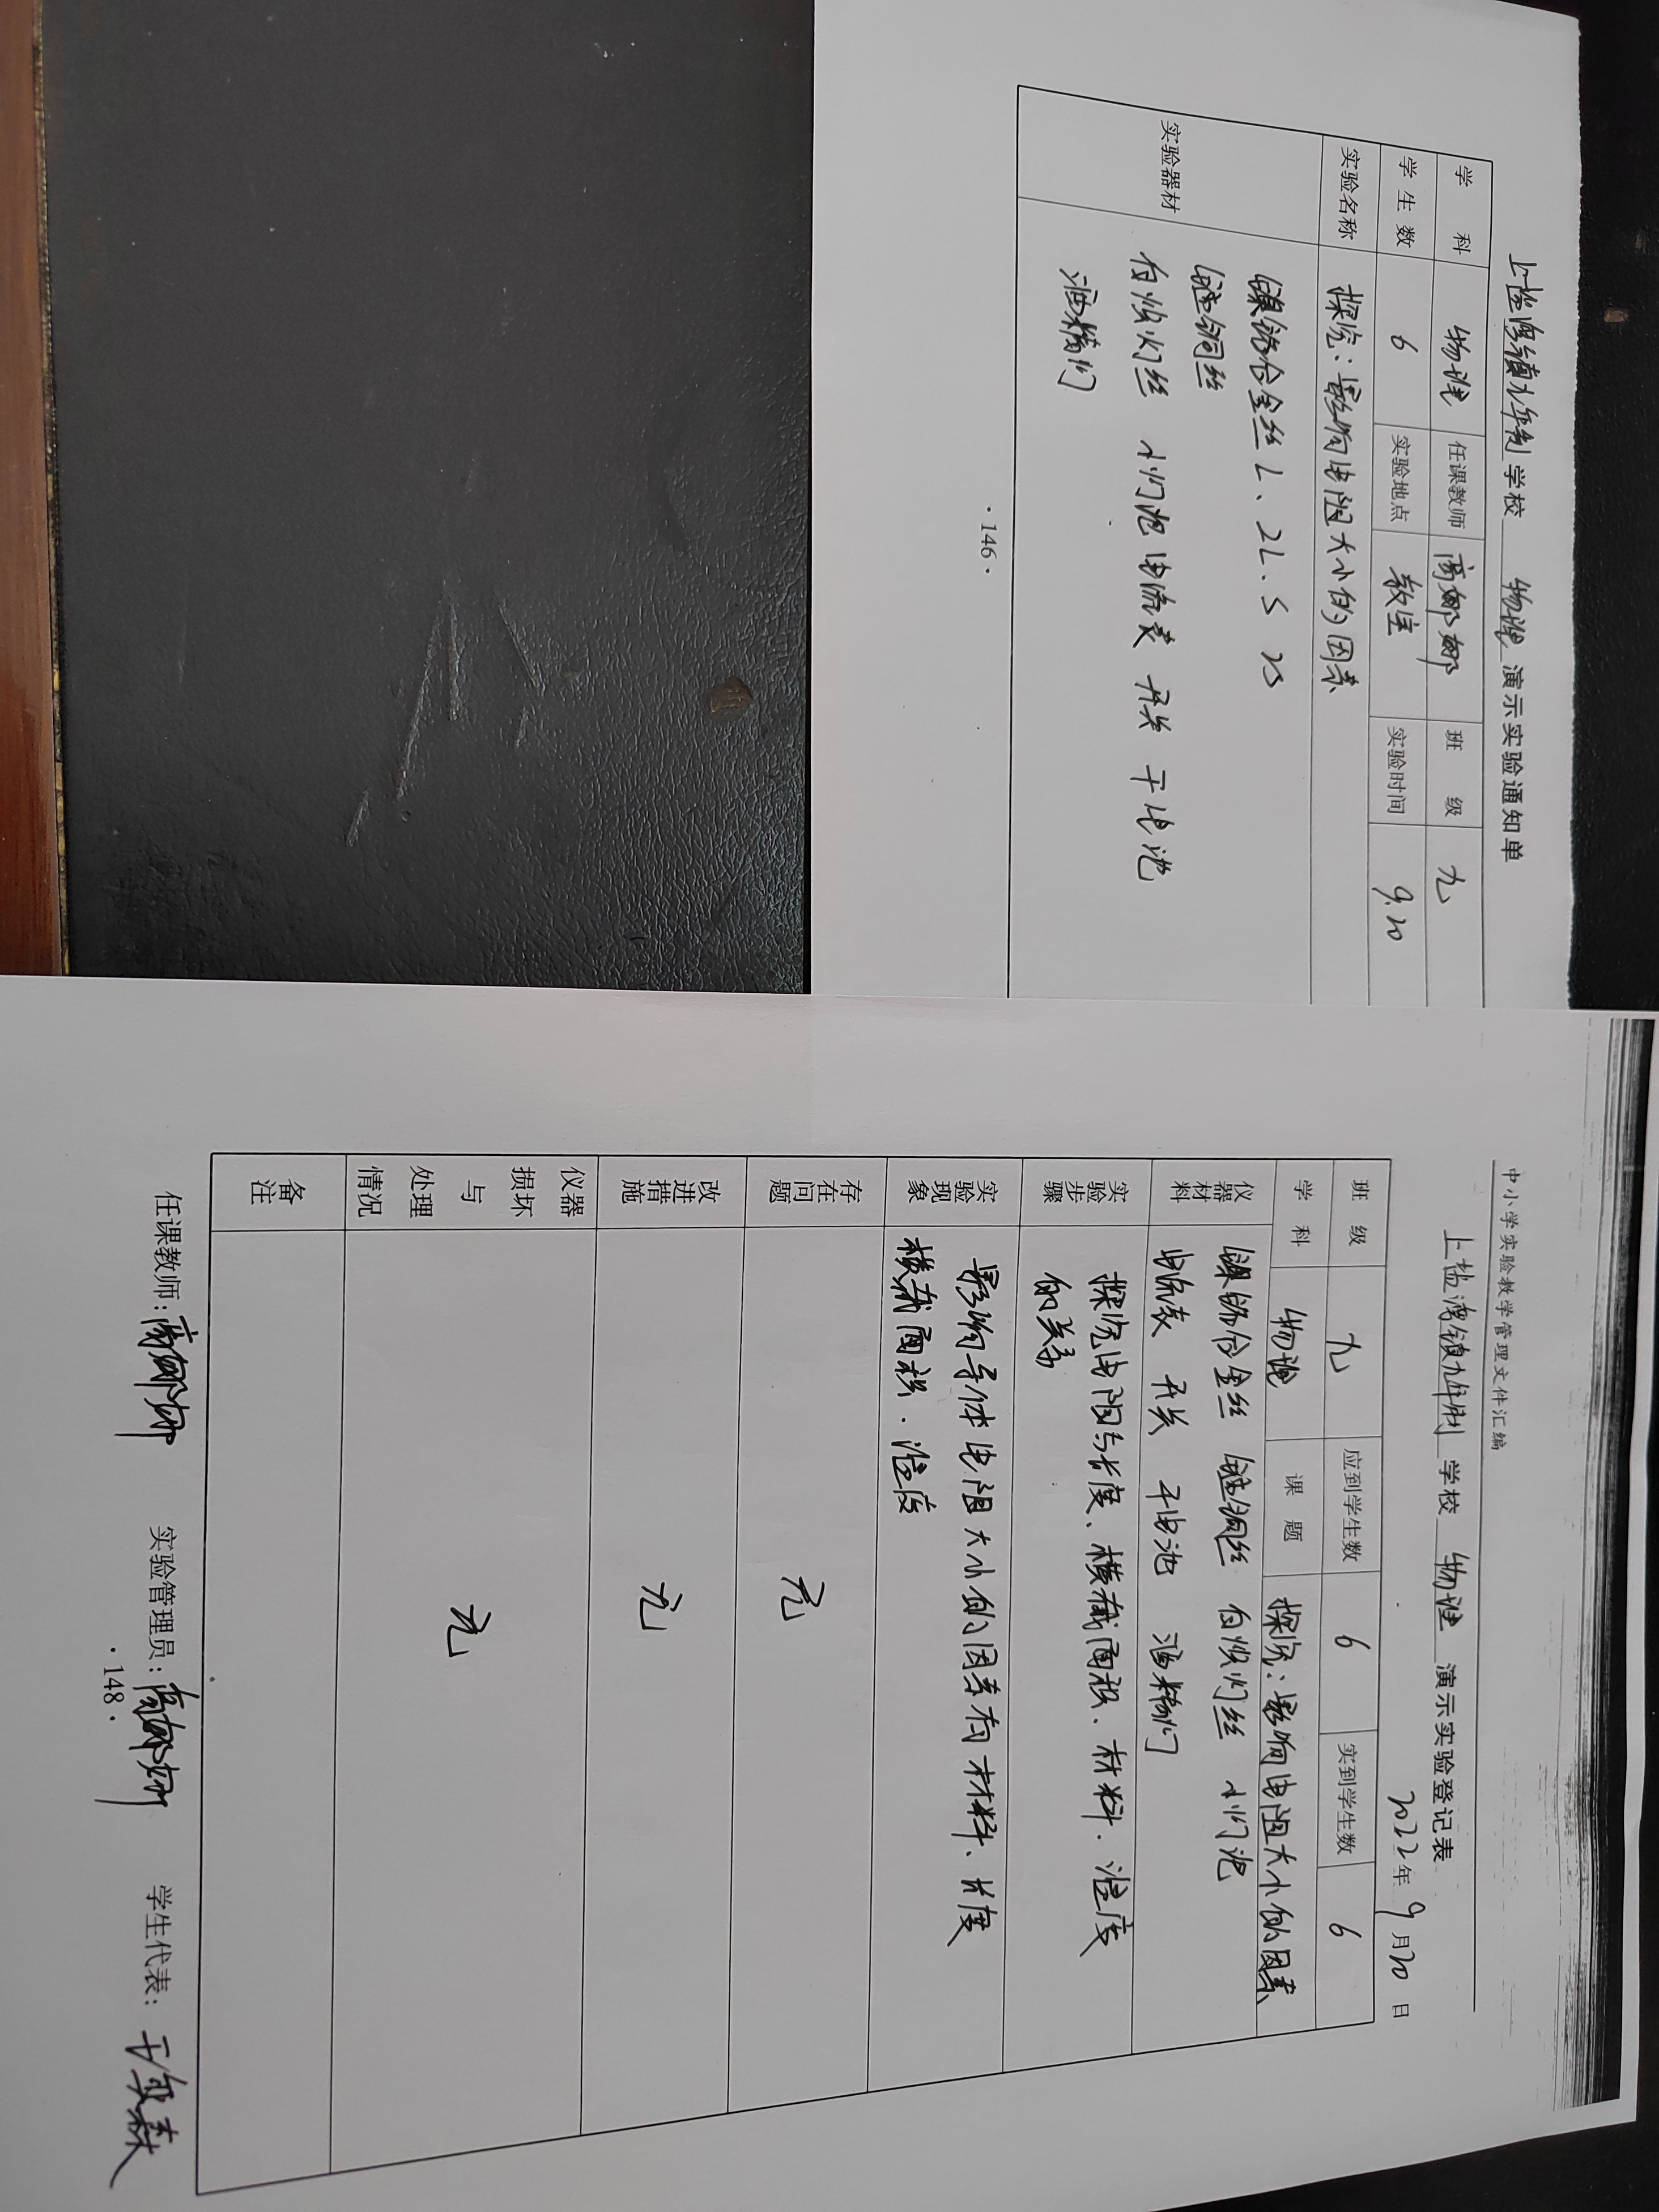 上盐湾镇九年制学校 物理 演示实验通知单
学 科 物理 任课教师 高娜娜 班 级 九
学生数 6 实验地点 教室 实验时间 9.20
实验名称 探究:影响电阻大小的因素
实验器材 镍铬合金丝 L、2L、S 2S
锰铜丝
白炽灯丝 小灯泡 电流表 开关 干电池
酒精灯
·146·
中小学实验教学管理文件汇编
上盐湾镇九年制学校 物理 演示实验登记表
2022年9月20日
班 级 九 应到学生数 6 实到学生数 6
学 科 物理 课 题 探究:影响电阻大小的因素
仪器材料 镍铬合金丝 锰铜丝 白炽灯丝 小灯泡
电流表 开关 干电池 酒精灯
实验步骤 探究电阻与长度、横截面积、材料、温度
的关系
实验现象 影响导体电阻大小的因素有材料、长度
横截面积、温度
存在问题 无
改进措施 无
仪器损坏与处理情况 无
备注
任课教师:高娜娜 实验管理员:高娜娜 学生代表:
·148·